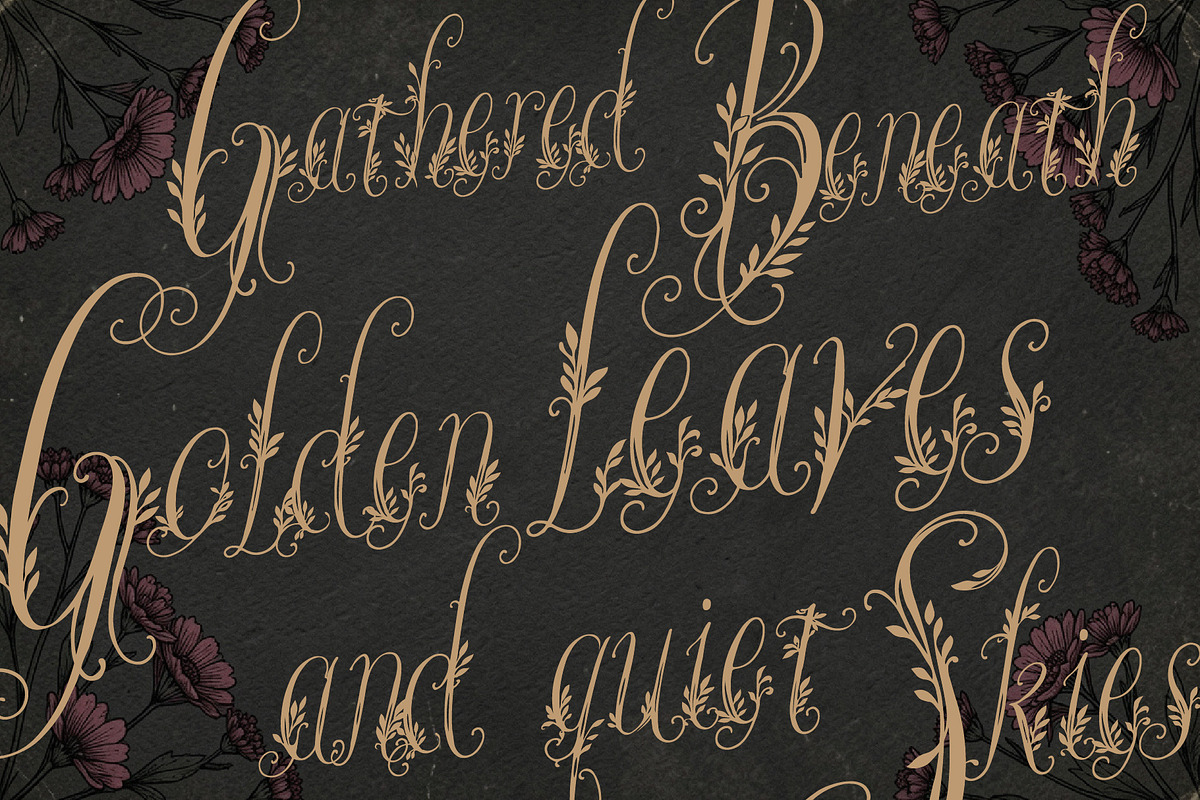 Gathered Beneath
Golden Leaves
and quiet Skies